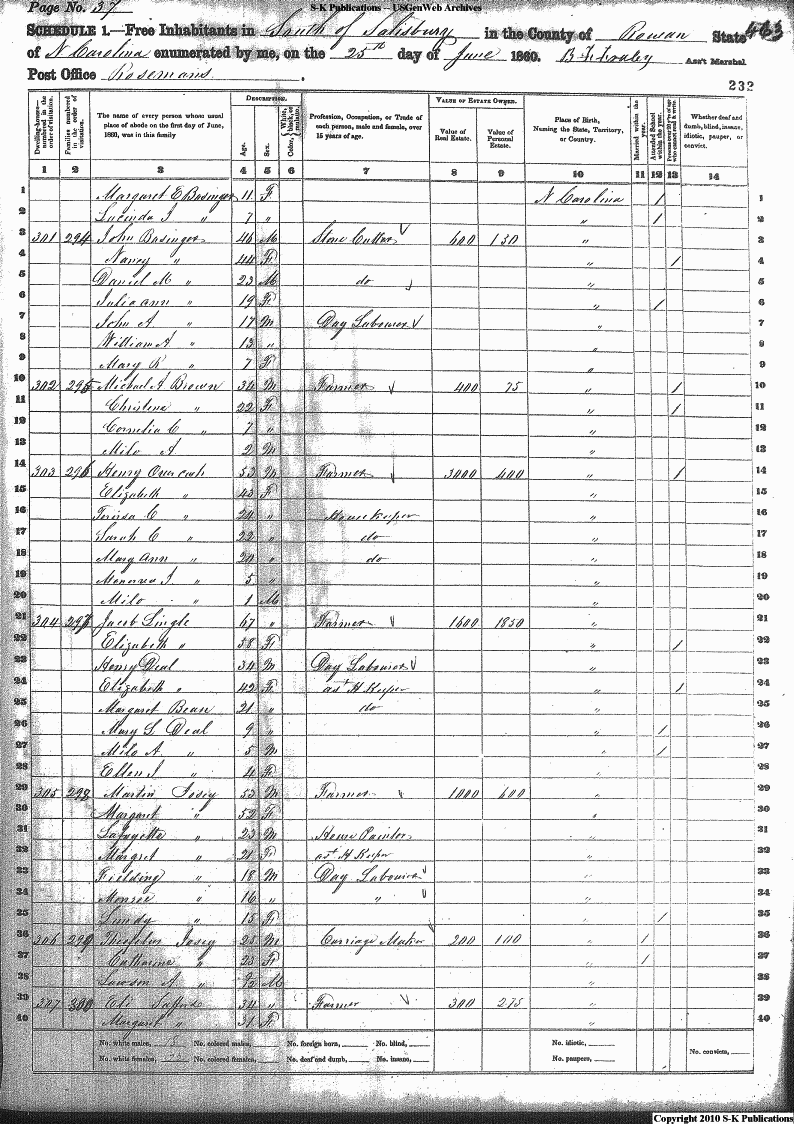 Page No. 37
S-K Publications -- USGenWeb Archives
SCHEDULE 1.—Free Inhabitants in South of Salisbury in the County of Rowan State
of N Carolina enumerated by me, on the 25th day of June 1860. B F Fraley Ass't Marshal
Post Office Rosemans.
232
Dwelling-houses—numbered in the order of visitation.
Families numbered in the order of visitation.
The name of every person whose usual place of abode on the first day of June, 1860, was in this family
DESCRIPTION.
Age.
Sex.
Color, White, black, or mulatto.
Profession, Occupation, or Trade of each person, male and female, over 15 years of age.
VALUE OF ESTATE OWNED.
Value of Real Estate.
Value of Personal Estate.
Place of Birth, Naming the State, Territory, or Country.
Married within the year.
Attended School within the year.
Persons over 20 y'rs of age who cannot read & write.
Whether deaf and dumb, blind, insane, idiotic, pauper, or convict.
1 2 3 4 5 6 7 8 9 10 11 12 13 14
1 Margaret E Basinger 11 F N Carolina / 1
2 Lucinda J " 7 " " / 2
3 301 294 John Basinger 46 M Stone Cutter 600 130 " 3
4 Nancy " 44 F " / 4
5 Daniel M " 23 M do " 5
6 Julia ann " 19 F " / 6
7 John A " 17 M Day Labourer " 7
8 William A " 13 " " 8
9 Mary R " 7 F " 9
10 302 295 Michael A Brown 34 M Farmer 400 75 " / 10
11 Christina " 22 F " / 11
12 Cornelia C " 7 " " 12
13 Milo A 2 M " 13
14 303 296 Henry Overcash 53 M Farmer 3000 400 " / 14
15 Elizabeth " 43 F " 15
16 Teressa C " 24 " House Keeper " 16
17 Sarah C " 22 " do " 17
18 Mary Ann " 20 " do " 18
19 Menerva J " 5 " " 19
20 Milo " 1 M " 20
21 304 297 Jacob Lingle 67 " Farmer 1600 1850 " 21
22 Elizabeth " 58 F " / 22
23 Henry Deal 34 M Day Labourer " 23
24 Elizabeth " 42 F ast H Keeper " / 24
25 Margaret Bean 21 " do " 25
26 Mary L Deal 9 " " / 26
27 Milo A " 5 M " / 27
28 Ellen J " 4 F " 28
29 305 298 Martin Josey 53 M Farmer 1000 600 " 29
30 Margaret " 52 F " 30
31 Lafayette " 23 M House Painter " 31
32 Margret " 21 F ast H Keeper " 32
33 Fielding " 18 M Day Labourer " 33
34 Monroe " 16 " " " 34
35 Lundy " 15 F " / 35
36 306 299 Josey 25 M Carriage Maker 200 100 " / 36
37 Catharine " 23 F " / 37
38 Lawson A " M " 38
39 307 300 Eli 34 " Farmer 300 275 " 39
40 Margaret " 31 F " 40
No. white males, No. colored males, No. foreign born, No. blind, No. idiotic, No. convicts,
No. white females, No. colored females, No. deaf and dumb, No. insane, No. paupers,
Copyright 2010 S-K Publications